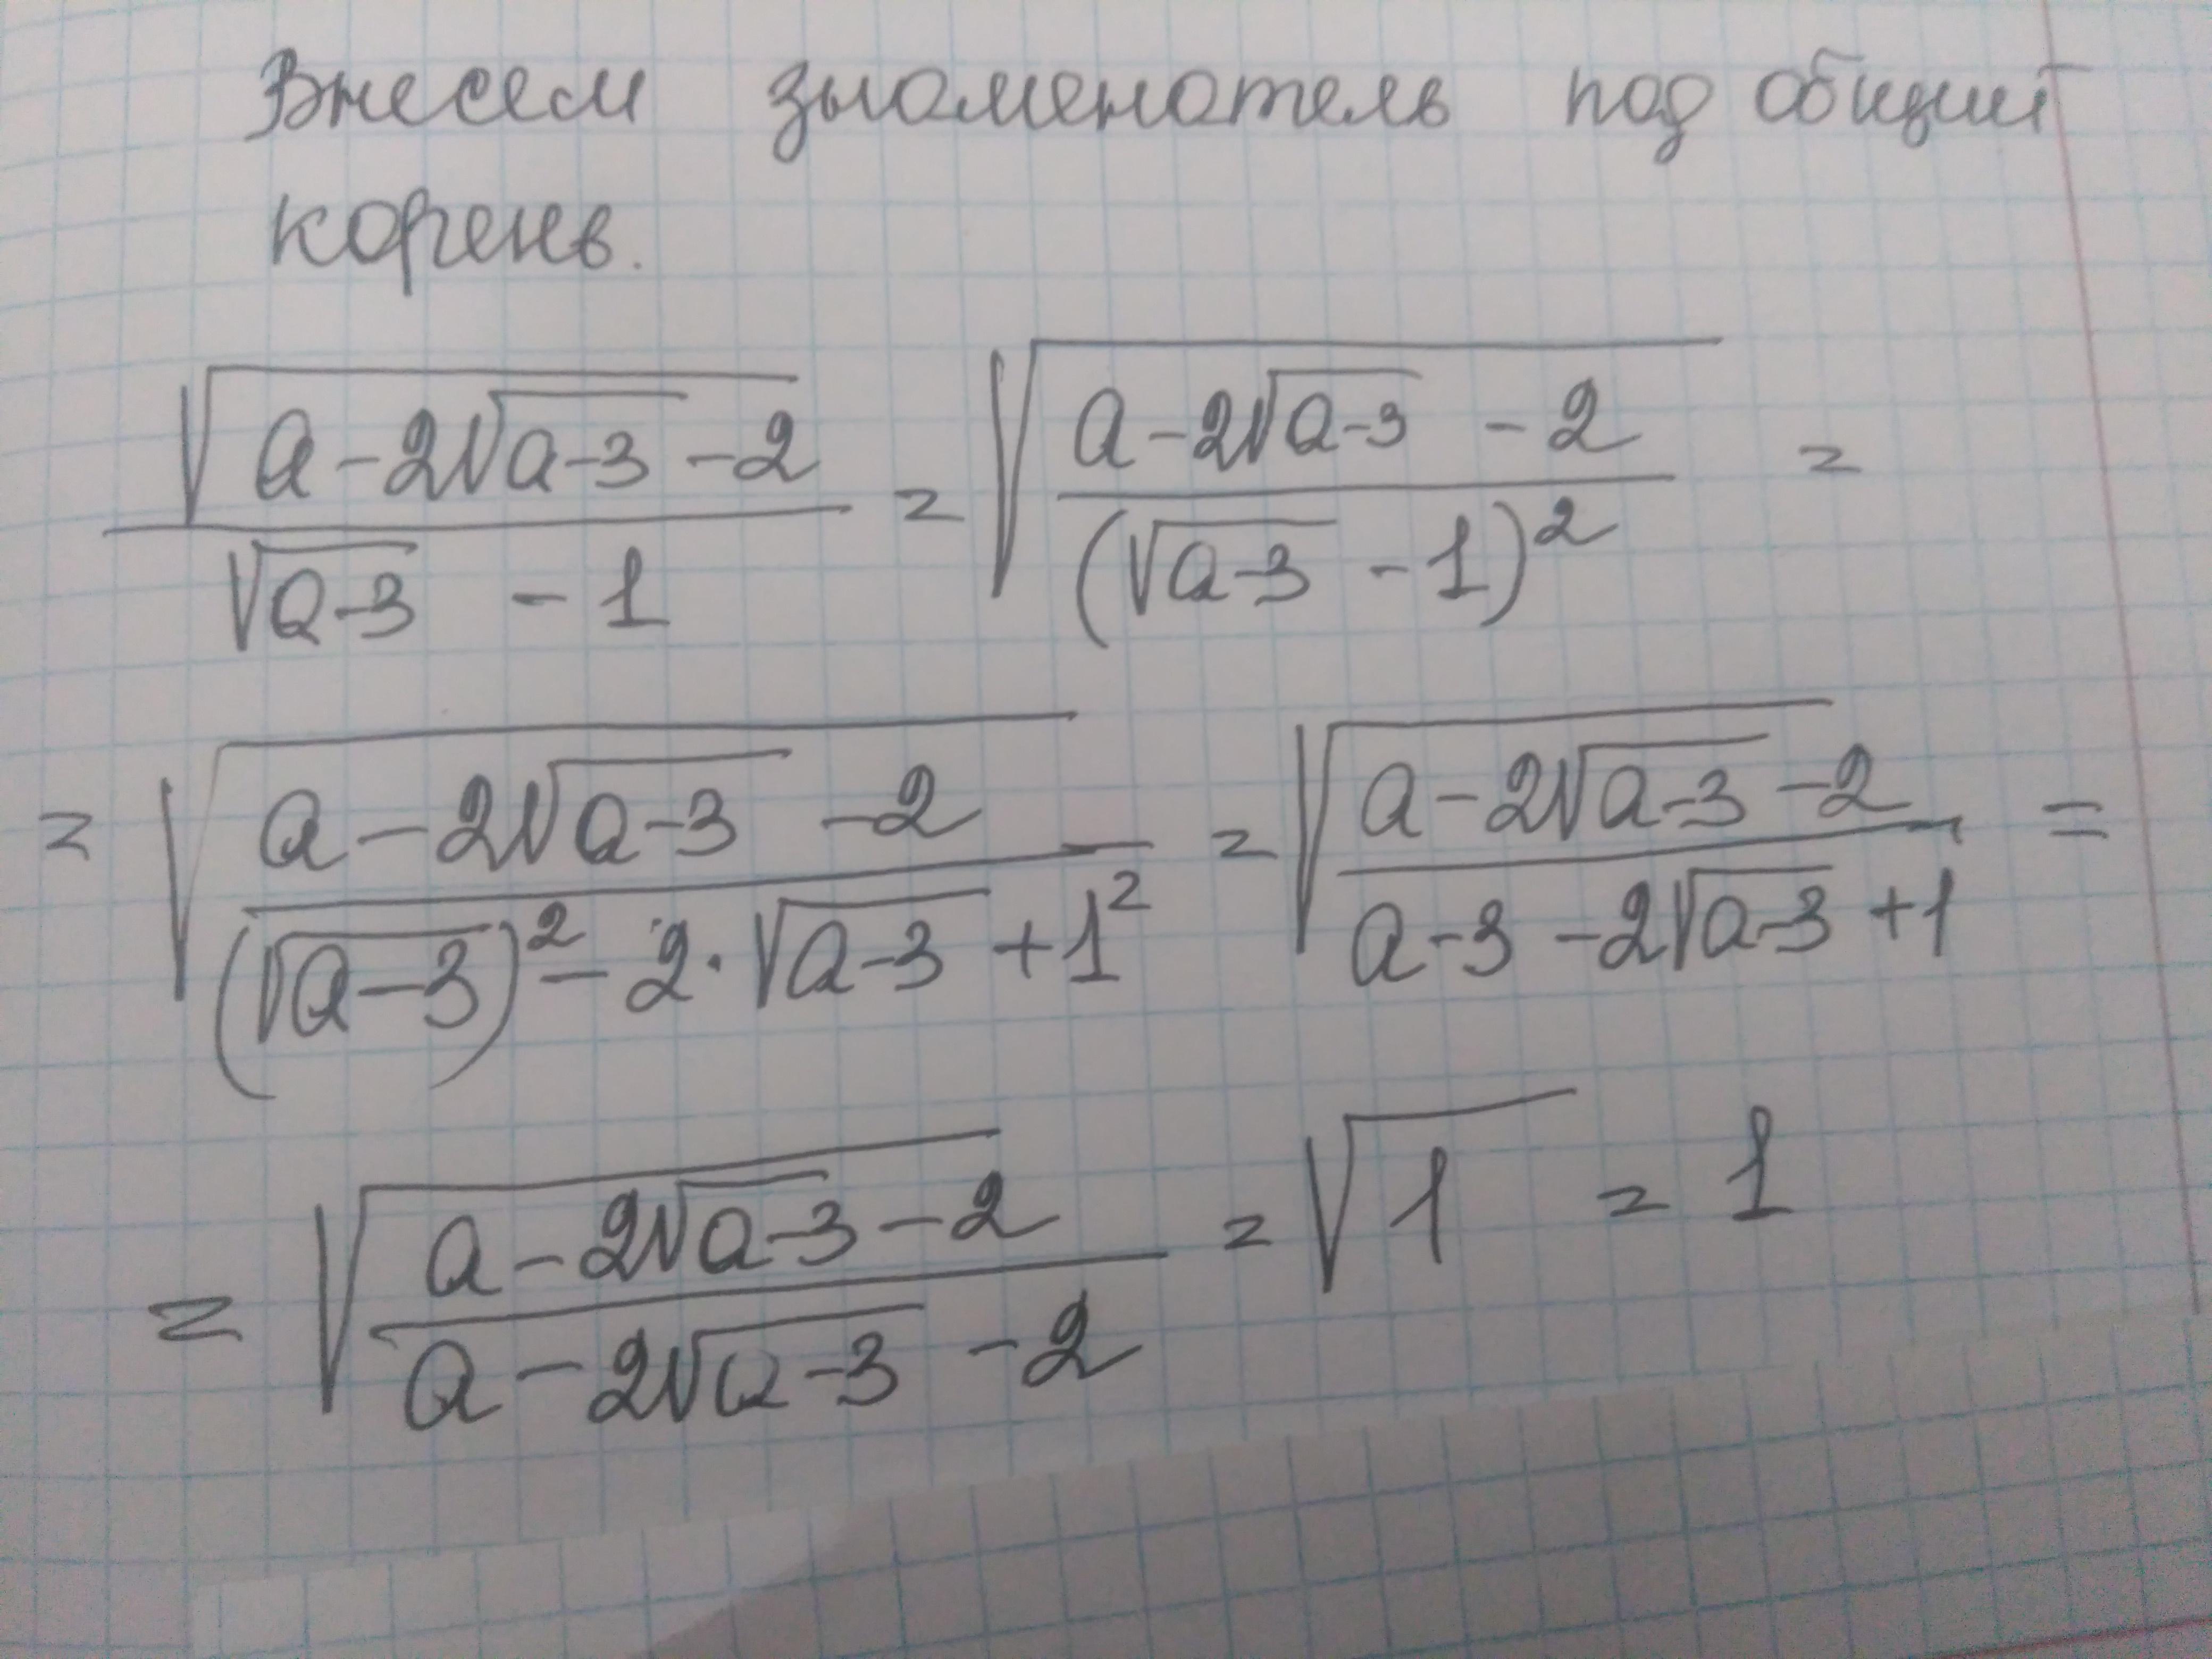 Внесем знаменатель под общий
корень.
\frac{\sqrt{a-2\sqrt{a-3}-2}}{\sqrt{a-3}-1} = \sqrt{\frac{a-2\sqrt{a-3}-2}{(\sqrt{a-3}-1)^2}} =
= \sqrt{\frac{a-2\sqrt{a-3}-2}{(\sqrt{a-3})^2-2\cdot\sqrt{a-3}+1^2}} = \sqrt{\frac{a-2\sqrt{a-3}-2}{a-3-2\sqrt{a-3}+1}} =
= \sqrt{\frac{a-2\sqrt{a-3}-2}{a-2\sqrt{a-3}-2}} = \sqrt{1} = 1